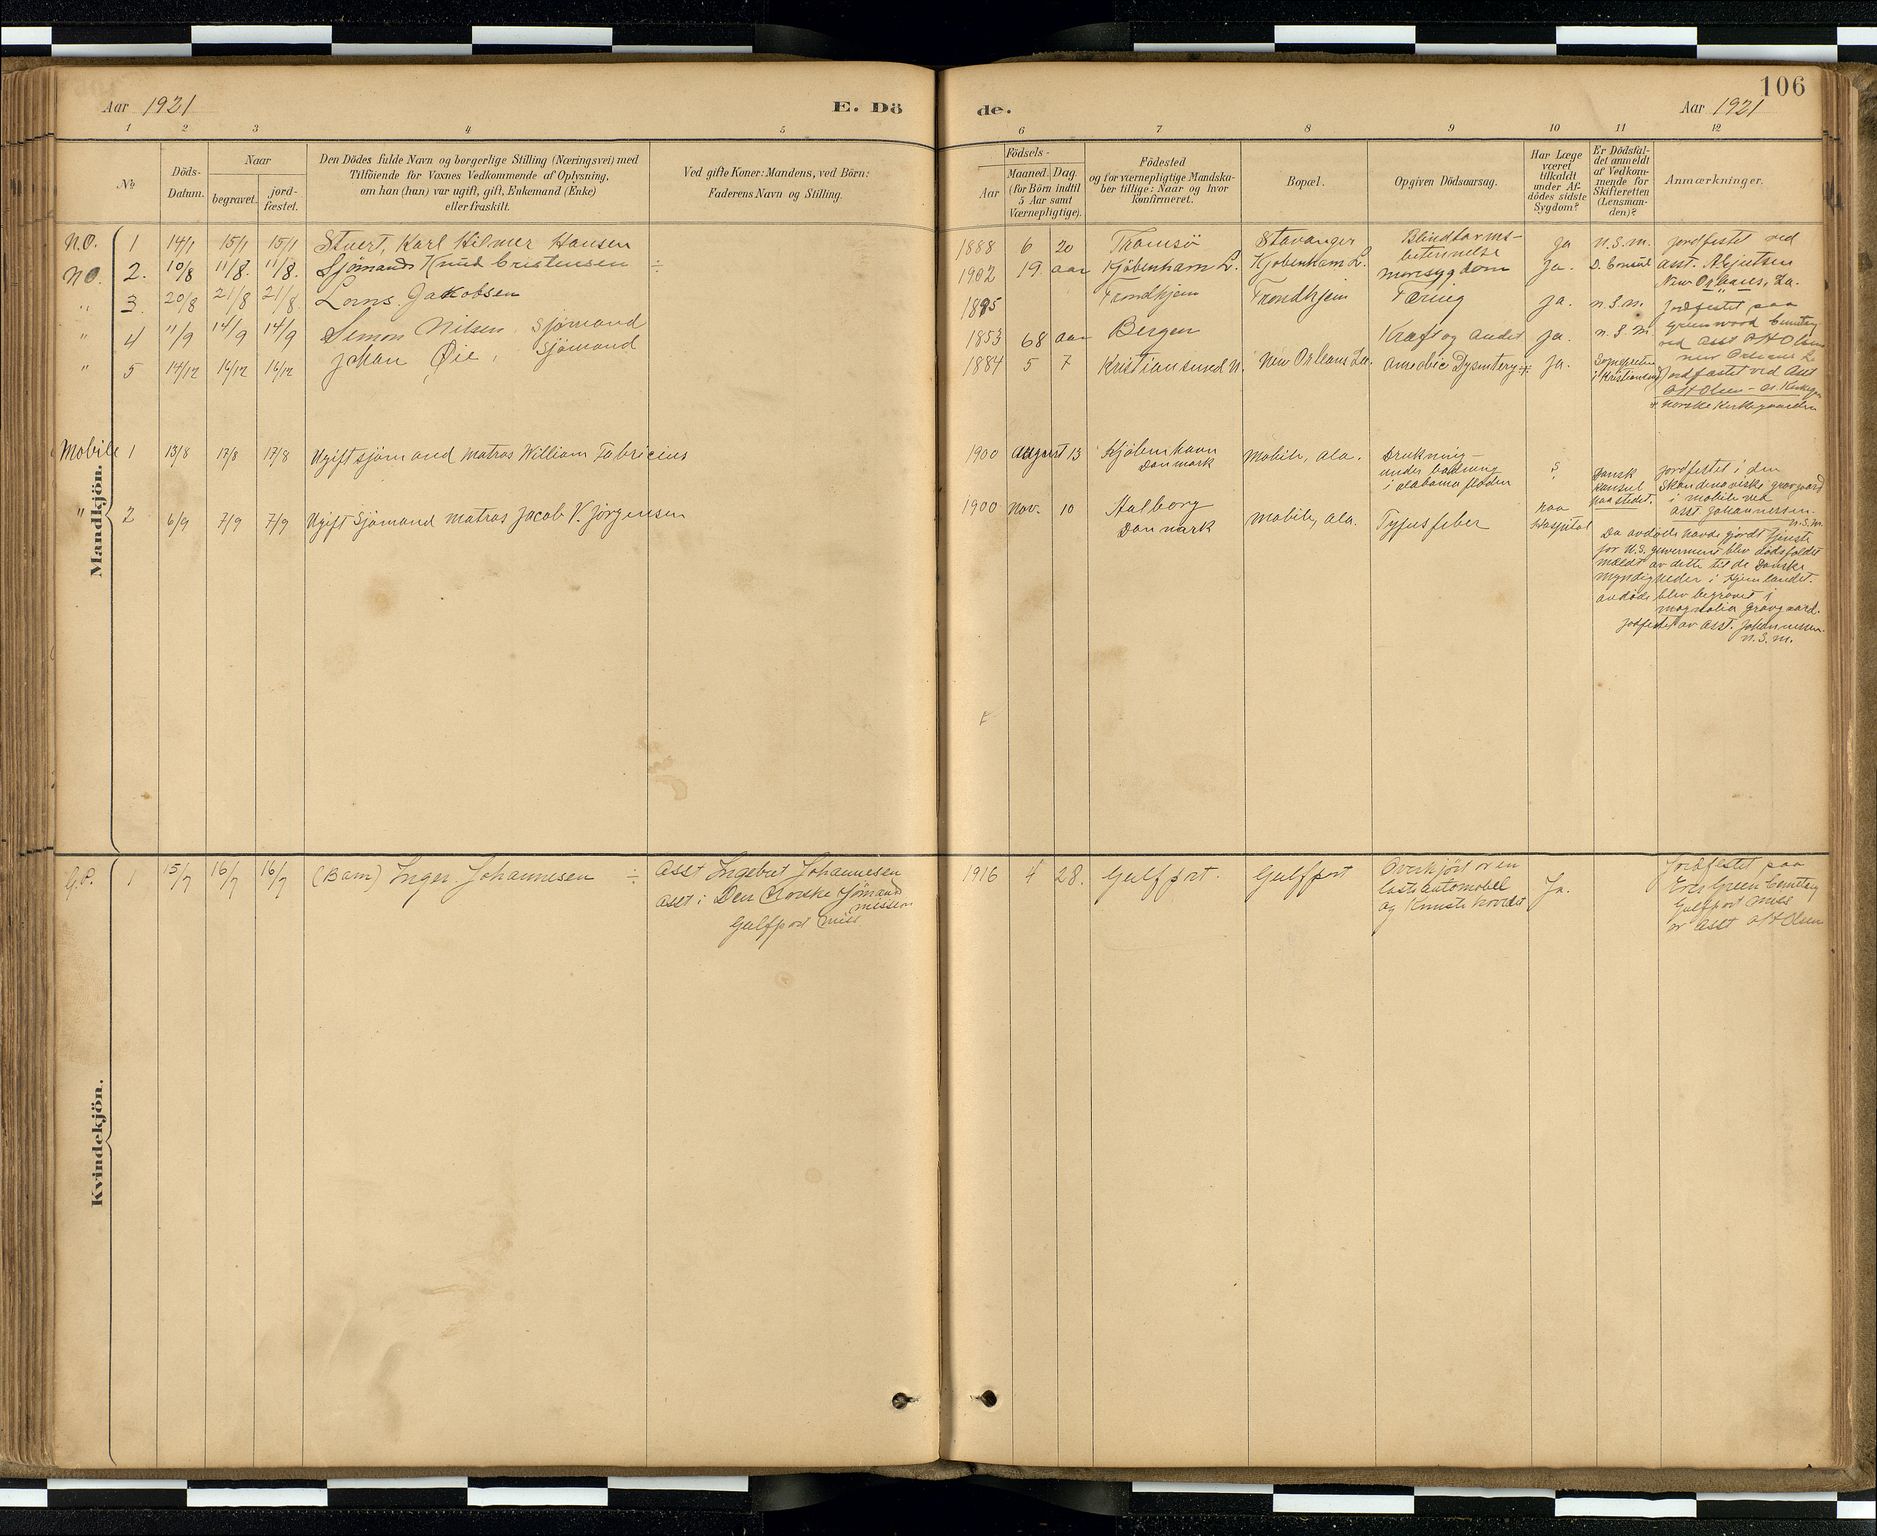 Aar 1921
E. Dö
de.
106
Aar 1921
1 2 3 4 5 6 7 8 9 10 11 12
No
Döds-
Datum.
Naar
begravet.
jord-
fæstet.
Den Dödes fulde Navn og borgerlige Stilling (Næringsvei) med
Tilföiende for Voxnes Vedkommende af Oplysning,
om han (hun) var ugift, gift, Enkemand (Enke)
eller fraskilt.
Ved gifte Koner: Mandens, ved Börn:
Faderens Navn og Stilling.
Födsels-
Aar
Maaned. Dag.
(for Börn indtil
5 Aar samt
Værnepligtige).
Födested
og for værnepligtige Mandska-
ber tillige: Naar og hvor
konfirmeret.
Bopæl.
Opgiven Dödsaarsag.
Har Læge
været
tilkaldt
under Af-
dödes sidste
Sygdom?
Er Dödsfal-
det anmeldt
af Vedkom-
mende for
Skifteretten
(Lensman-
den)?
Anmærkninger.
Mandkjön.
N.O. 1 14/1 15/1 15/1 Stuert, Karl Hilmer Hansen 1888 6 20 Tromsö Stavanger Blindtarms-
betennelse Ja N.S.M. Jordfestet ved
N.O. 2. 10/8 11/8. 11/8. Sjömand Knud Cristensen ÷ 1902 19 aar Kjöbenham L. Kjöbenham L. Ja. D. Consul Asst.
New Orleans, La.
" 3. 20/8 21/8 21/8 Jakobsen 1895 Trondhjem Trondhjem Tæring Ja. N.S.M. Jordfestet paa
Greenwood Cemetery
" 4 11/9 14/9 14/9 Simon Nilsen, Sjömand 1853 68 aar Bergen Kræft og andet Ja. N.S.M
ved Asst O H Olsen
New Orleans La
" 5 14/12 16/12 16/12 Johan Øie, Sjömand 1884 5 7 Kristiansund N. New Orleans La. Amoebic Dysentery Ja. Sogneprsten
i Kristiansund Jordfæstet ved Asst
O H Olsen -
norske Kirkegaarden
Mobile 1 13/8 17/8 17/8 Ugift sjömand matros William Fabricius 1900 August 13 Kjöbenhavn
Danmark Mobile, Ala. Drukning -
under badning
i Alabama floden ? Dansk
Konsul
paa stedet. Jordfestet i den
Skandinaviske gravgaard
i Mobile ved
Asst Johannessen.
N.S.M.
" 2 6/9 7/9 7/9 Ugift Sjömand Matros Jacob V. Jörgensen 1900 Nov. 10 Aalborg
Danmark Mobile, Ala. Tyfusfeber paa
Hospital
Da avdöde havde gjordt tjenste
for U.S. guverment blev dödsfaldet
meldt av dette til de Danske
myndigheder i Hjemlandet.
Avdöde blev begravet i
Magnolia gravgaard.
Jordfestet av Asst. Johannessen.
N.S.M.
Kvindekjön.
G.P. 1 15/7 16/7 16/7 (Barn) Inger Johannesen ÷ Asst Ingebret Johannesen
Asst i Den Norske Sjömand
mission
Gulfport Miss 1916 4 28. Gulfport. Gulfport Overkjört av en
laste automobel
og knuste hovedet Ja. Jordfestet paa
Ever Green Cemetery
Gulfport Miss
av Asst O H Olsen